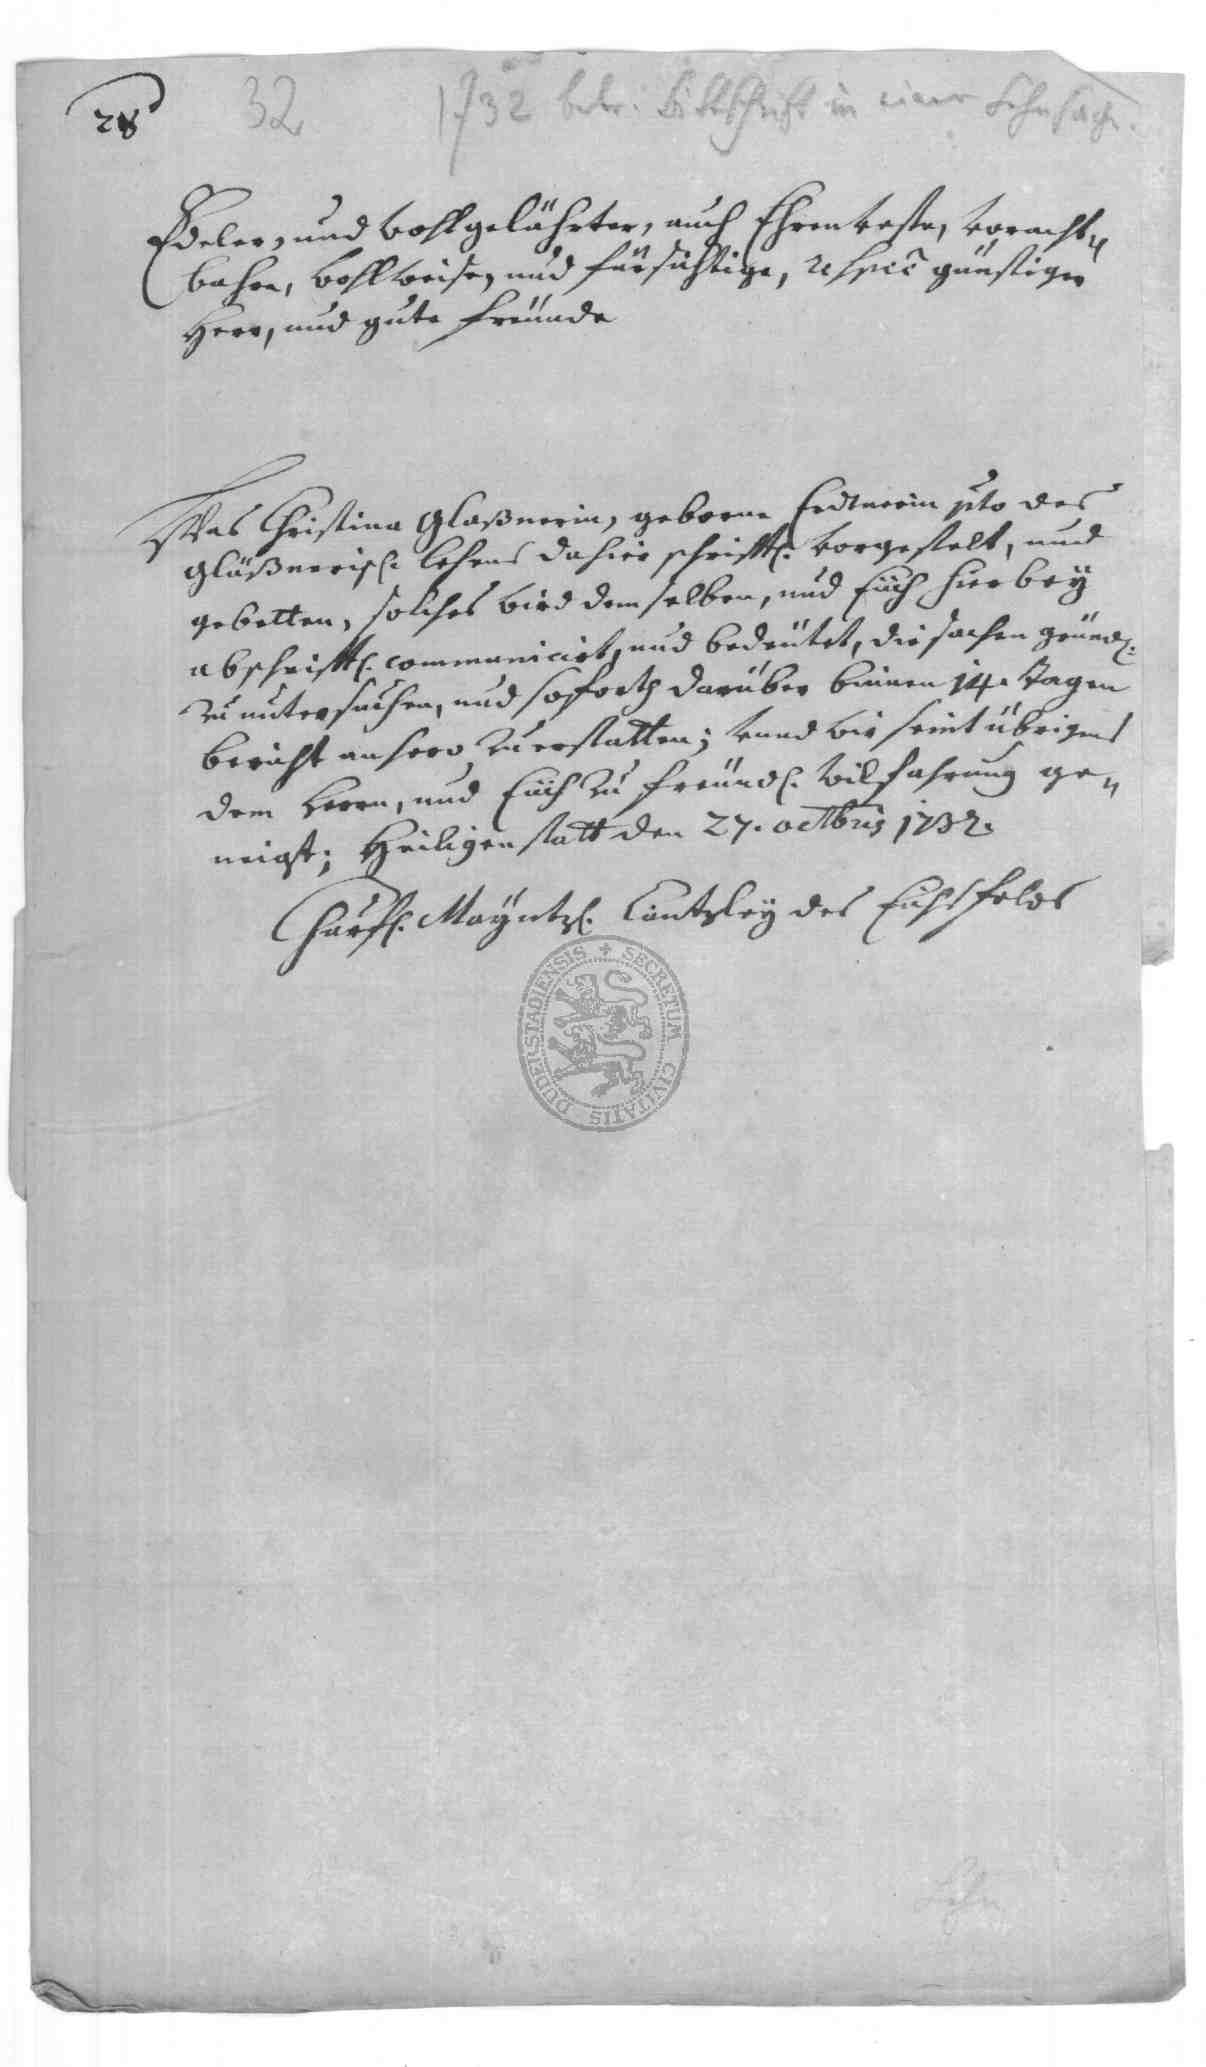 28
32
1732 betr. Bittschrift in einer Lehnsache.
Edeler, und wohlgelährter, auch Ehrenveste, voracht¬
bahre, wohlweise, und fürsichtige, respec günstiger
Herr, und gute freünde
Was Christina Glaßnerin, geborne pcto des
Gläßnerisch. lehens dahier schrifftl. vorgestelt, und
gebetten, solches wird demselben, und Eüch hierbey
abschrifftl. communicirt, und bedeütet, die sachen gründl.
zu untersuchen, und soforth darüber binnen 14. tagen
bericht anhero zu erstatten; und wir seint übrigens
dem Herrn, und Eüch zu freündl. wilfahrung ge¬
neigt; Heiligenstatt den 27. octbris 1732.
Churfl. Mayntzl. Cantzley des Eichsfelds
SECRETUM CIVITATIS DUDERSTADIENSIS
Lehn